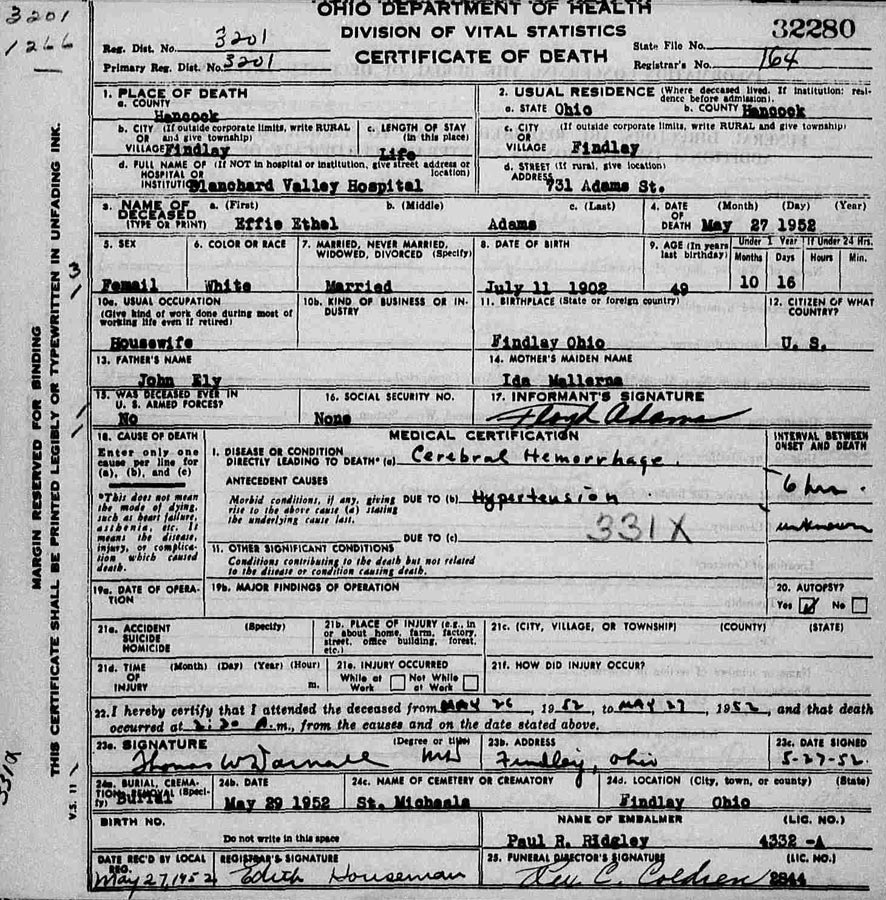 3201
1266
OHIO DEPARTMENT OF HEALTH
DIVISION OF VITAL STATISTICS
CERTIFICATE OF DEATH
Reg. Dist. No. 3201
Primary Reg. Dist. No. 3201
State File No. 32280
Registrar's No. 164
MARGIN RESERVED FOR BINDING
THIS CERTIFICATE SHALL BE PRINTED LEGIBLY OR TYPEWRITTEN IN UNFADING INK.
3
331a
V.S. 11
1. PLACE OF DEATH
a. COUNTY
Hancock
2. USUAL RESIDENCE (Where deceased lived. If institution: resi-
dence before admission).
a. STATE Ohio b. COUNTY Hancock
b. CITY (If outside corporate limits, write RURAL
OR and give township)
VILLAGE Findlay
c. LENGTH OF STAY
(in this place)
Life
c. CITY (If outside corporate limits, write RURAL and give township)
OR
VILLAGE Findlay
d. FULL NAME OF (If NOT in hospital or institution, give street address or
HOSPITAL OR location)
INSTITUTION Blanchard Valley Hospital
d. STREET (If rural, give location)
ADDRESS 731 Adams St.
3. NAME OF
DECEASED
(TYPE OR PRINT)
a. (First) b. (Middle) c. (Last)
Effie Ethel Adams
4. DATE
OF
DEATH
(Month) (Day) (Year)
May 27 1952
5. SEX
Femail
6. COLOR OR RACE
White
7. MARRIED, NEVER MARRIED,
WIDOWED, DIVORCED (Specify)
Married
8. DATE OF BIRTH
July 11 1902
9. AGE (In years
last birthday)
49
Under 1 Year
Months Days
10 16
If Under 24 Hrs.
Hours Min.
10a. USUAL OCCUPATION
(Give kind of work done during most of
working life even if retired)
Housewife
10b. KIND OF BUSINESS OR IN-
DUSTRY
11. BIRTHPLACE (State or foreign country)
Findlay Ohio
12. CITIZEN OF WHAT
COUNTRY?
U. S.
13. FATHER'S NAME
John Ely
14. MOTHER'S MAIDEN NAME
Ida
15. WAS DECEASED EVER IN
U. S. ARMED FORCES?
No
16. SOCIAL SECURITY NO.
None
17. INFORMANT'S SIGNATURE
Floyd Adams
18. CAUSE OF DEATH
Enter only one
cause per line for
(a), (b), and (c)
*This does not mean
the mode of dying,
such as heart failure,
asthenia, etc. It
means the disease,
injury, or complica-
tion which caused
death.
MEDICAL CERTIFICATION
I. DISEASE OR CONDITION
DIRECTLY LEADING TO DEATH* (a) Cerebral Hemorrhage.
ANTECEDENT CAUSES
Morbid conditions, if any, giving
rise to the above cause (a) stating
the underlying cause last.
DUE TO (b) Hypertension
331X
DUE TO (c)
11. OTHER SIGNIFICANT CONDITIONS
Conditions contributing to the death but not related
to the disease or condition causing death.
INTERVAL BETWEEN
ONSET AND DEATH
6 hrs.
unknown
19a. DATE OF OPERA-
TION
19b. MAJOR FINDINGS OF OPERATION
20. AUTOPSY?
Yes No
21a. ACCIDENT (Specify)
SUICIDE
HOMICIDE
21b. PLACE OF INJURY (e.g., in
or about home, farm, factory,
street, office building, forest,
etc.)
21c. (CITY, VILLAGE, OR TOWNSHIP) (COUNTY) (STATE)
21d. TIME (Month) (Day) (Year) (Hour)
OF
INJURY m.
21e. INJURY OCCURRED
While at Not While
Work at Work
21f. HOW DID INJURY OCCUR?
22. I hereby certify that I attended the deceased from MAY 26, 1952, to MAY 27, 1952, and that death
occurred at 2:30 A.m., from the causes and on the date stated above.
23a. SIGNATURE (Degree or title)
Thomas W Darnall MD
23b. ADDRESS
Findlay, Ohio
23c. DATE SIGNED
5-27-52
24a. BURIAL, CREMA-
TION, REMOVAL (Speci-
fy) Burial
24b. DATE
May 29 1952
24c. NAME OF CEMETERY OR CREMATORY
St. Michaels
24d. LOCATION (City, town, or county) (State)
Findlay Ohio
BIRTH NO.
Do not write in this space
NAME OF EMBALMER (LIC. NO.)
Paul R. Ridgley 4332 -A
DATE REC'D BY LOCAL
REG.
May 27, 1952
REGISTRAR'S SIGNATURE
Edith Houseman
25. FUNERAL DIRECTOR'S SIGNATURE (LIC. NO.)
C. Coldren 2844